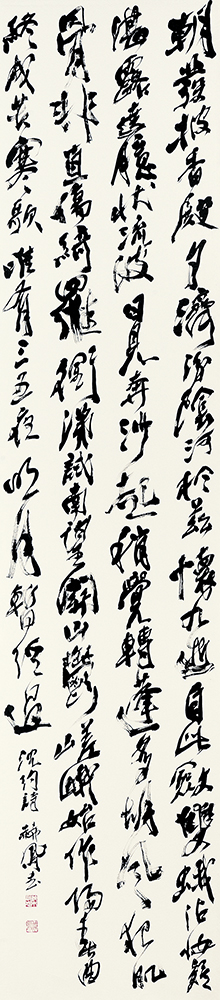 朝發披香殿夕濟汾陰河於茲懷九逝自此斂雙蛾沾妝疑
湛露遶臆狀流波日見奔沙起稍覺轉蓬多胡風犯肌
骨非直傷綺羅銜涕試南望關山鬱嵯峨始作陽春曲
終成苦寒歌唯有三五夜明月暫經過
沈約詩